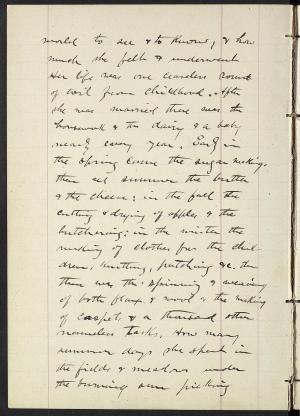 world to see & to know, & how
much she felt & underwent.
Her life was one ceaseless round
of toil from childhood. After
she was married there was the
housework & the dairy & a baby
nearly every year. Early in
the spring came the sugar making.
then all summer the butter
& the cheese; in the fall the
cutting & drying of apples & the
butchering; in the winter the
making of clothes for the chil-
dren, knitting, patching &c. then
there was the spinning & weaving
of both flax & wool & the making
of carpets & a thousand other
nameless tasks. How many
summer days she spent in
the fields & meadows under
the burning sun picking